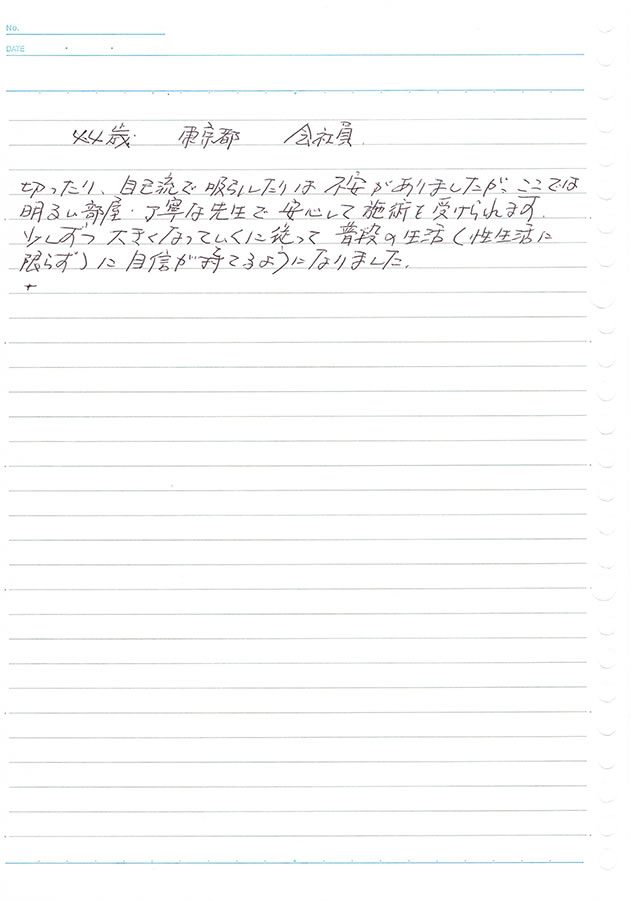 No.
DATE ・ ・
44歳. 東京都 会社員.
切ったり、自己流で吸引したりは不安がありましたが、ここでは
明るい部屋・丁寧な先生で安心して施術を受けられます.
少しずつ大きくなっていくに従って普段の生活(性生活に
限らず)に自信が持てるようになりました.